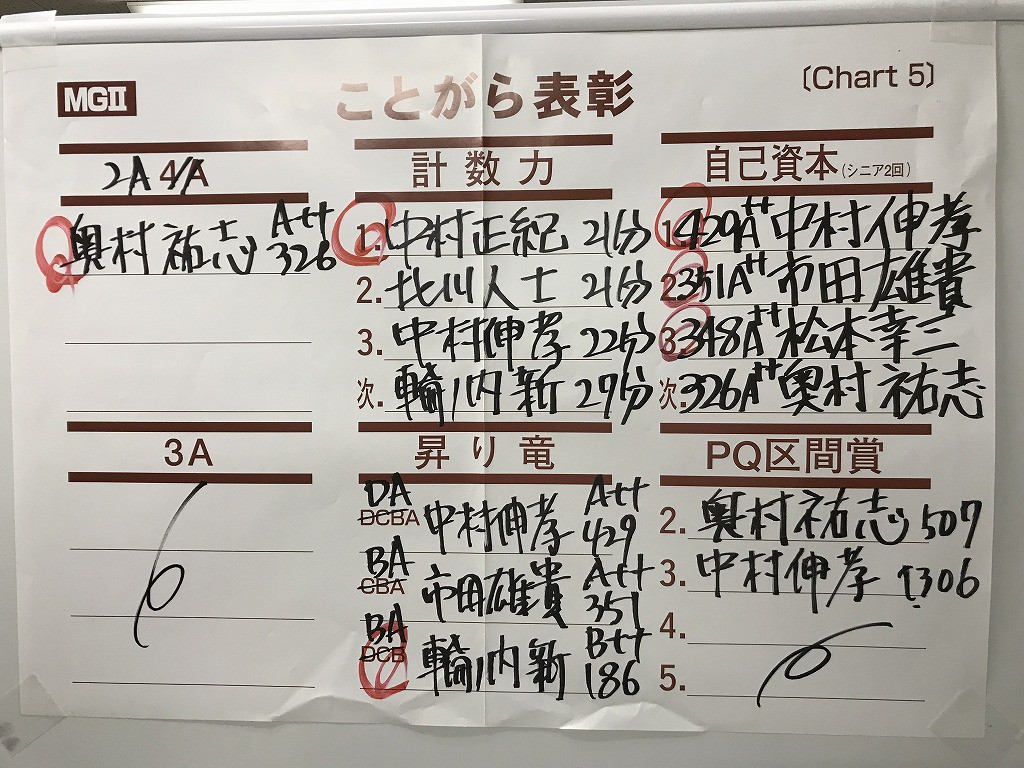 MGII
ことがら表彰
〔Chart 5〕
2A 4A
奥村祐志 A++ 326
3A
計数力
1. 中村正紀 21分
2. 北川人士 21分
3. 中村伸孝 22分
次. 輪ノ内新 27分
昇り竜
DA
DCBA 中村伸孝 A++ 429
BA
CBA 市田雄貴 A++ 351
BA
DCB 輪ノ内新 B++ 186
自己資本(シニア2回)
1. 429A++ 中村伸孝
2. 351A++ 市田雄貴
3. 348A++ 松本幸三
次. 326A++ 奥村祐志
PQ区間賞
2. 奥村祐志 507
3. 中村伸孝 1306
4.
5.